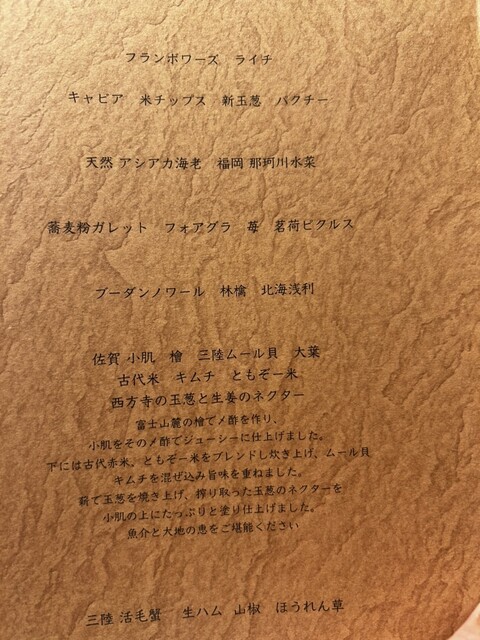 フランボワーズ　ライチ
キャビア　米チップス　新玉葱　パクチー
天然 アシアカ海老　福岡 那珂川水菜
蕎麦粉ガレット　フォアグラ　苺　茗荷ピクルス
ブーダンノワール　林檎　北海浅利
佐賀 小肌　檜　三陸ムール貝　大葉
古代米　キムチ　ともぞー米
西方寺の玉葱と生姜のネクター
富士山麓の檜で〆酢を作り、
小肌をその〆酢でジューシーに仕上げました。
下には古代赤米。ともぞー米をブレンドし炊き上げ、ムール貝
キムチを混ぜ込み旨味を重ねました。
薪で玉葱を焼き上げ、搾り取った玉葱のネクターを
小肌の上にたっぷりと塗り仕上げました。
魚介と大地の恵をご堪能ください
三陸 活毛蟹　生ハム　山椒　ほうれん草